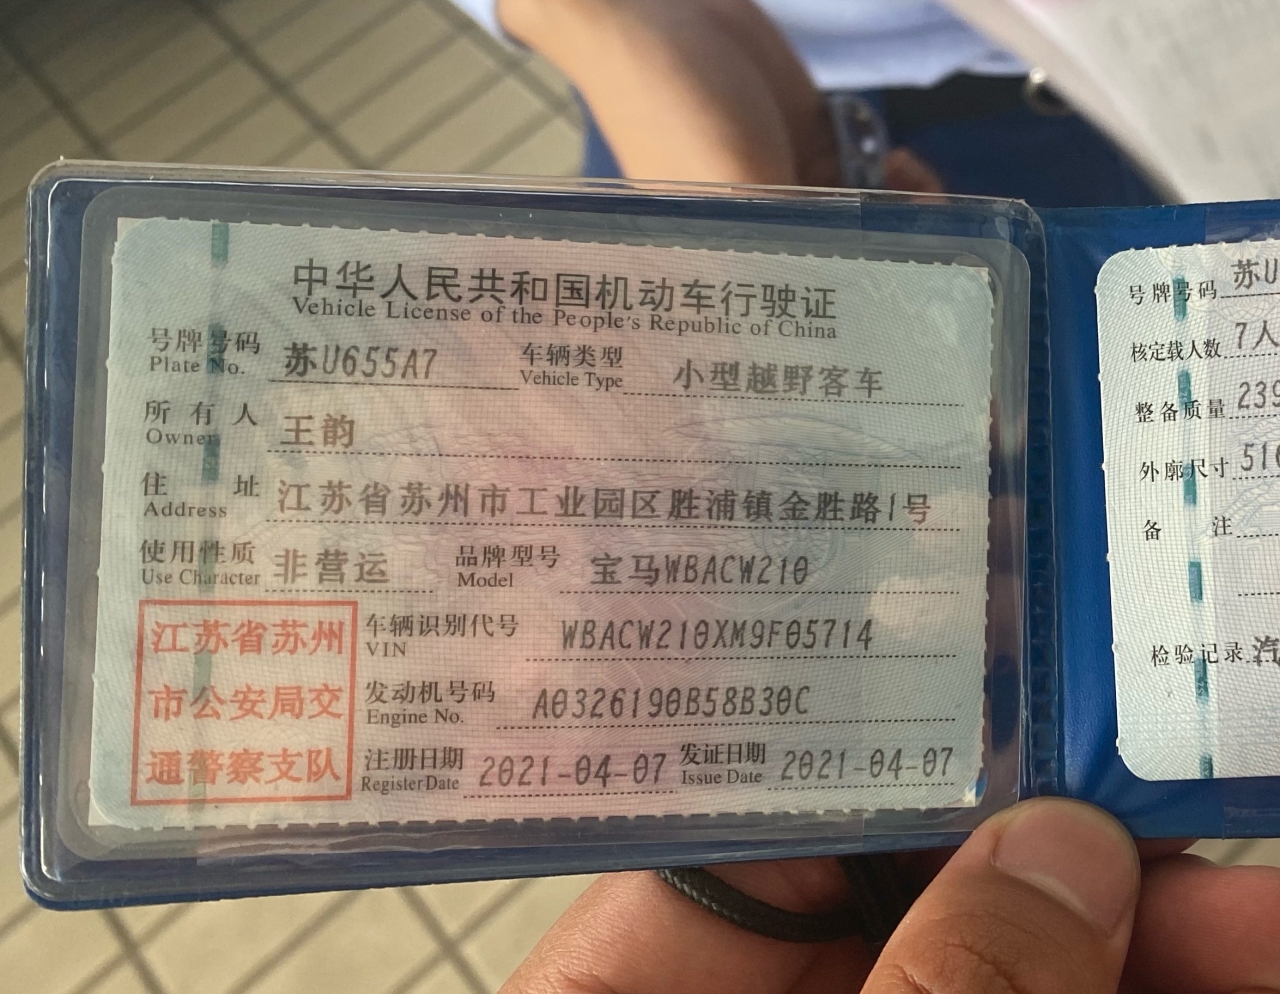 中华人民共和国机动车行驶证
Vehicle License of the People's Republic of China
号牌号码 苏U655A7 车辆类型 小型越野客车
Plate No. Vehicle Type
所有人 王韵
Owner
住址 江苏省苏州市工业园区胜浦镇金胜路1号
Address
使用性质 非营运 品牌型号 宝马WBACW210
Use Character Model
江苏省苏州
市公安局交
通警察支队
车辆识别代号 WBACW210XM9F05714
VIN
发动机号码 A0326190B58B30C
Engine No.
注册日期 2021-04-07 发证日期 2021-04-07
Register Date Issue Date
号牌号码 苏U
核定载人数 7人
整备质量 239
外廓尺寸 516
备注
检验记录 汽